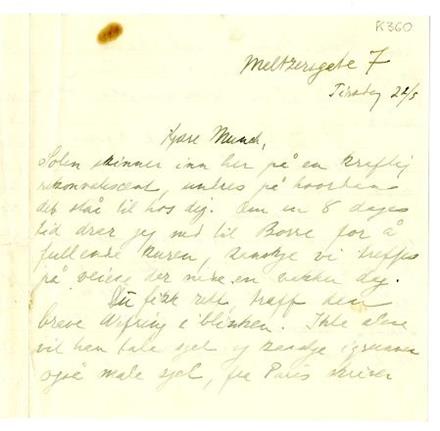 K360
Meltzersgate 7
Tirsdag 22/5
Kjære Munch,
Solen skinner inn her på en kraftig
rekonvalescent, undres på hvordan
det stå til hos dig. Om en 8 dages
tid drar jeg ned til Borre for å
fullende kuren, kanskje vi treffes
på veiene der nede en vakker dag.
Du fikk rett, traff den
brave i blinken. Ikke
vil han tale sjel og kanskje
også male sjel, fra Paris skriver